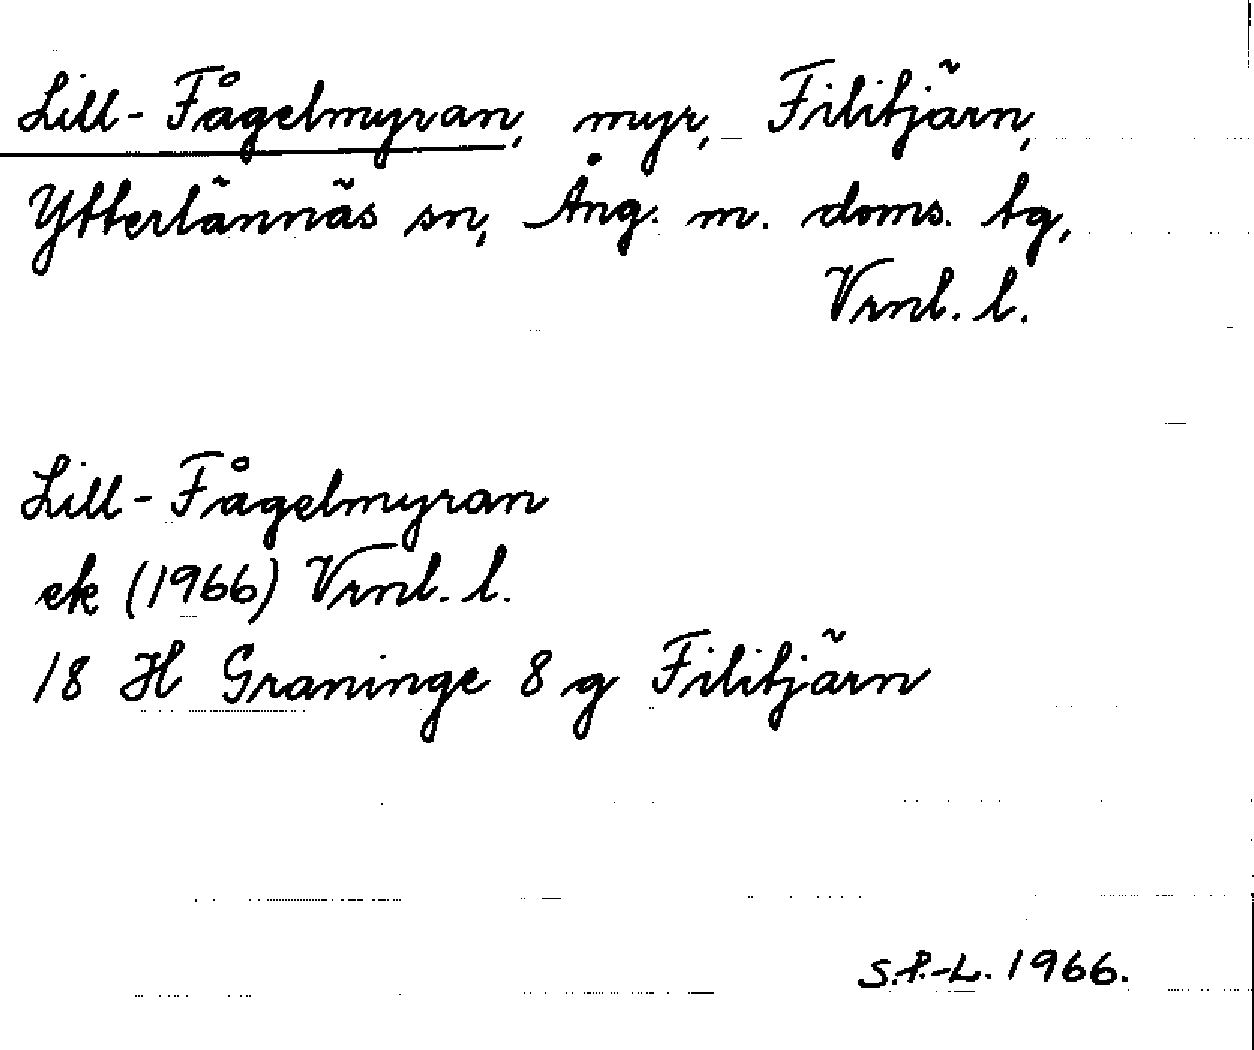 Lill-Fågelmyran, myr, Filitjärn,
Ytterlännäs sn, Ång. m. doms. tg,
Vrnl. l.
Lill-Fågelmyran
ek (1966) Vrnl. l.
18 H Graninge 8 g Filitjärn
S.P.-L. 1966.